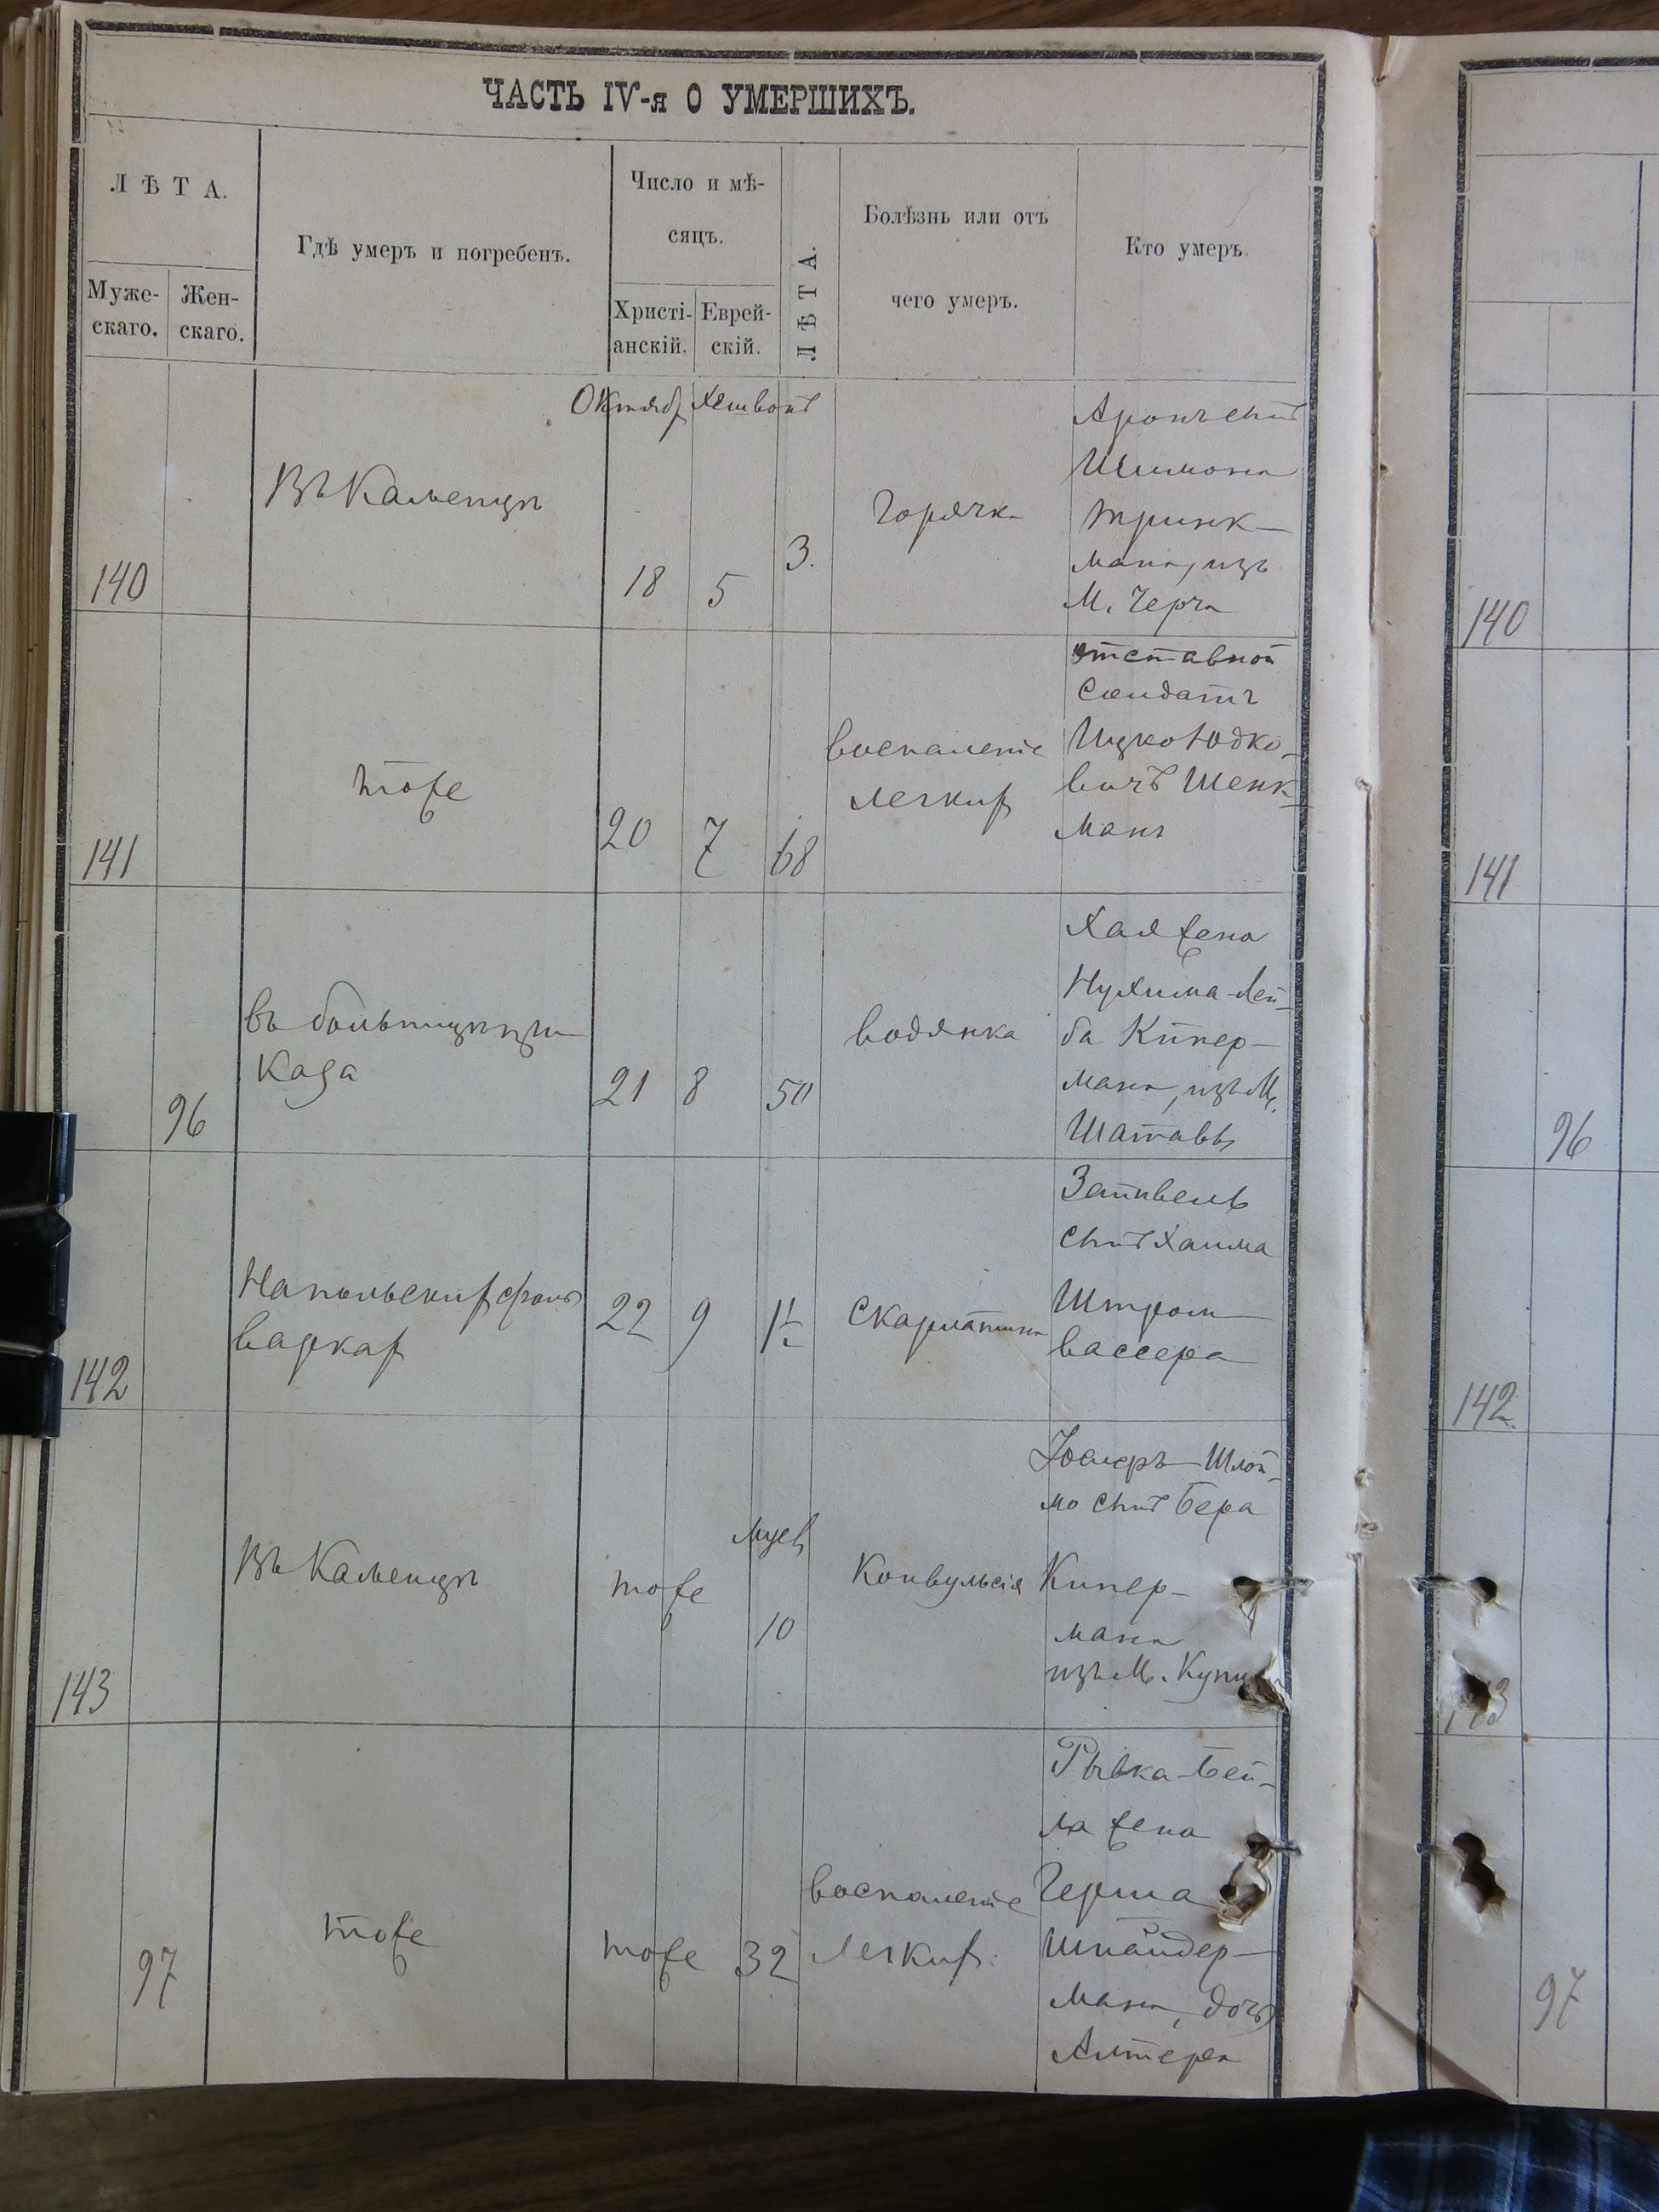 ЧАСТЬ IV-я О УМЕРШИХЪ.
ЛѢТА.
Муже-
скаго.
Жен-
скаго.
Гдѣ умеръ и погребенъ.
Число и мѣ-
сяцъ.
Христі-
анскій.
Еврей-
скій.
ЛѢТА.
Болѣзнь или отъ
чего умеръ.
Кто умеръ.
Октябр Хешвонъ
140
Въ Каменцѣ
18
5
3.
Горячка
Аронъ сынъ
Шимона
Тринк-
мана, изъ
М. Черча
140
141
тоже
20
7
68
воспаленіе
легкихъ
отставной
солдатъ
Ицко Юдко-
вичъ Шенк-
манъ
141
96
въ больницѣ
каза
21
8
50
водянка
Хая жена
Нухима-Лей-
ба Кипер-
мана, изъ М.
Шатавы
96
142
На польскихъ фоль
варкахъ
22
9
1½
Скарлатина
Зейнвель
сынъ Хаима
Штром
вассера
142.
143
Въ Каменцѣ
тоже
мцев
10
Конвульсія
Шлой-
мо сынъ Бера
Кипер-
мана
изъ М. Купи
143
97
тоже
тоже
32
воспаленіе
легких.
Рывка-Бей-
ла жена
Герша
Шпайдер-
мана, дочь
Алтера
97